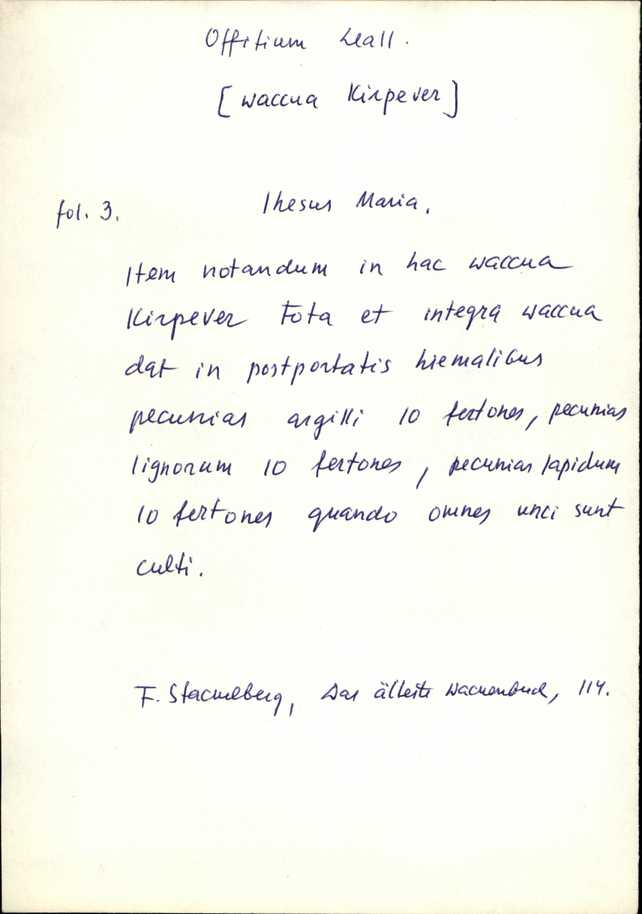 Offitium Leall.
[waccua Kirpever]
fol. 3. Ihesus Maria.
Item notandum in hac waccua
Kirpever tota et integra waccua
dat in postportatis hiemalibus
pecunias argilli 10 fertones, pecunias
lignorum 10 fertones, pecunias lapidum
10 fertones quando omnes unci sunt
culti.
F. Stackelberg, Das älteste Wackenbuch, 114.